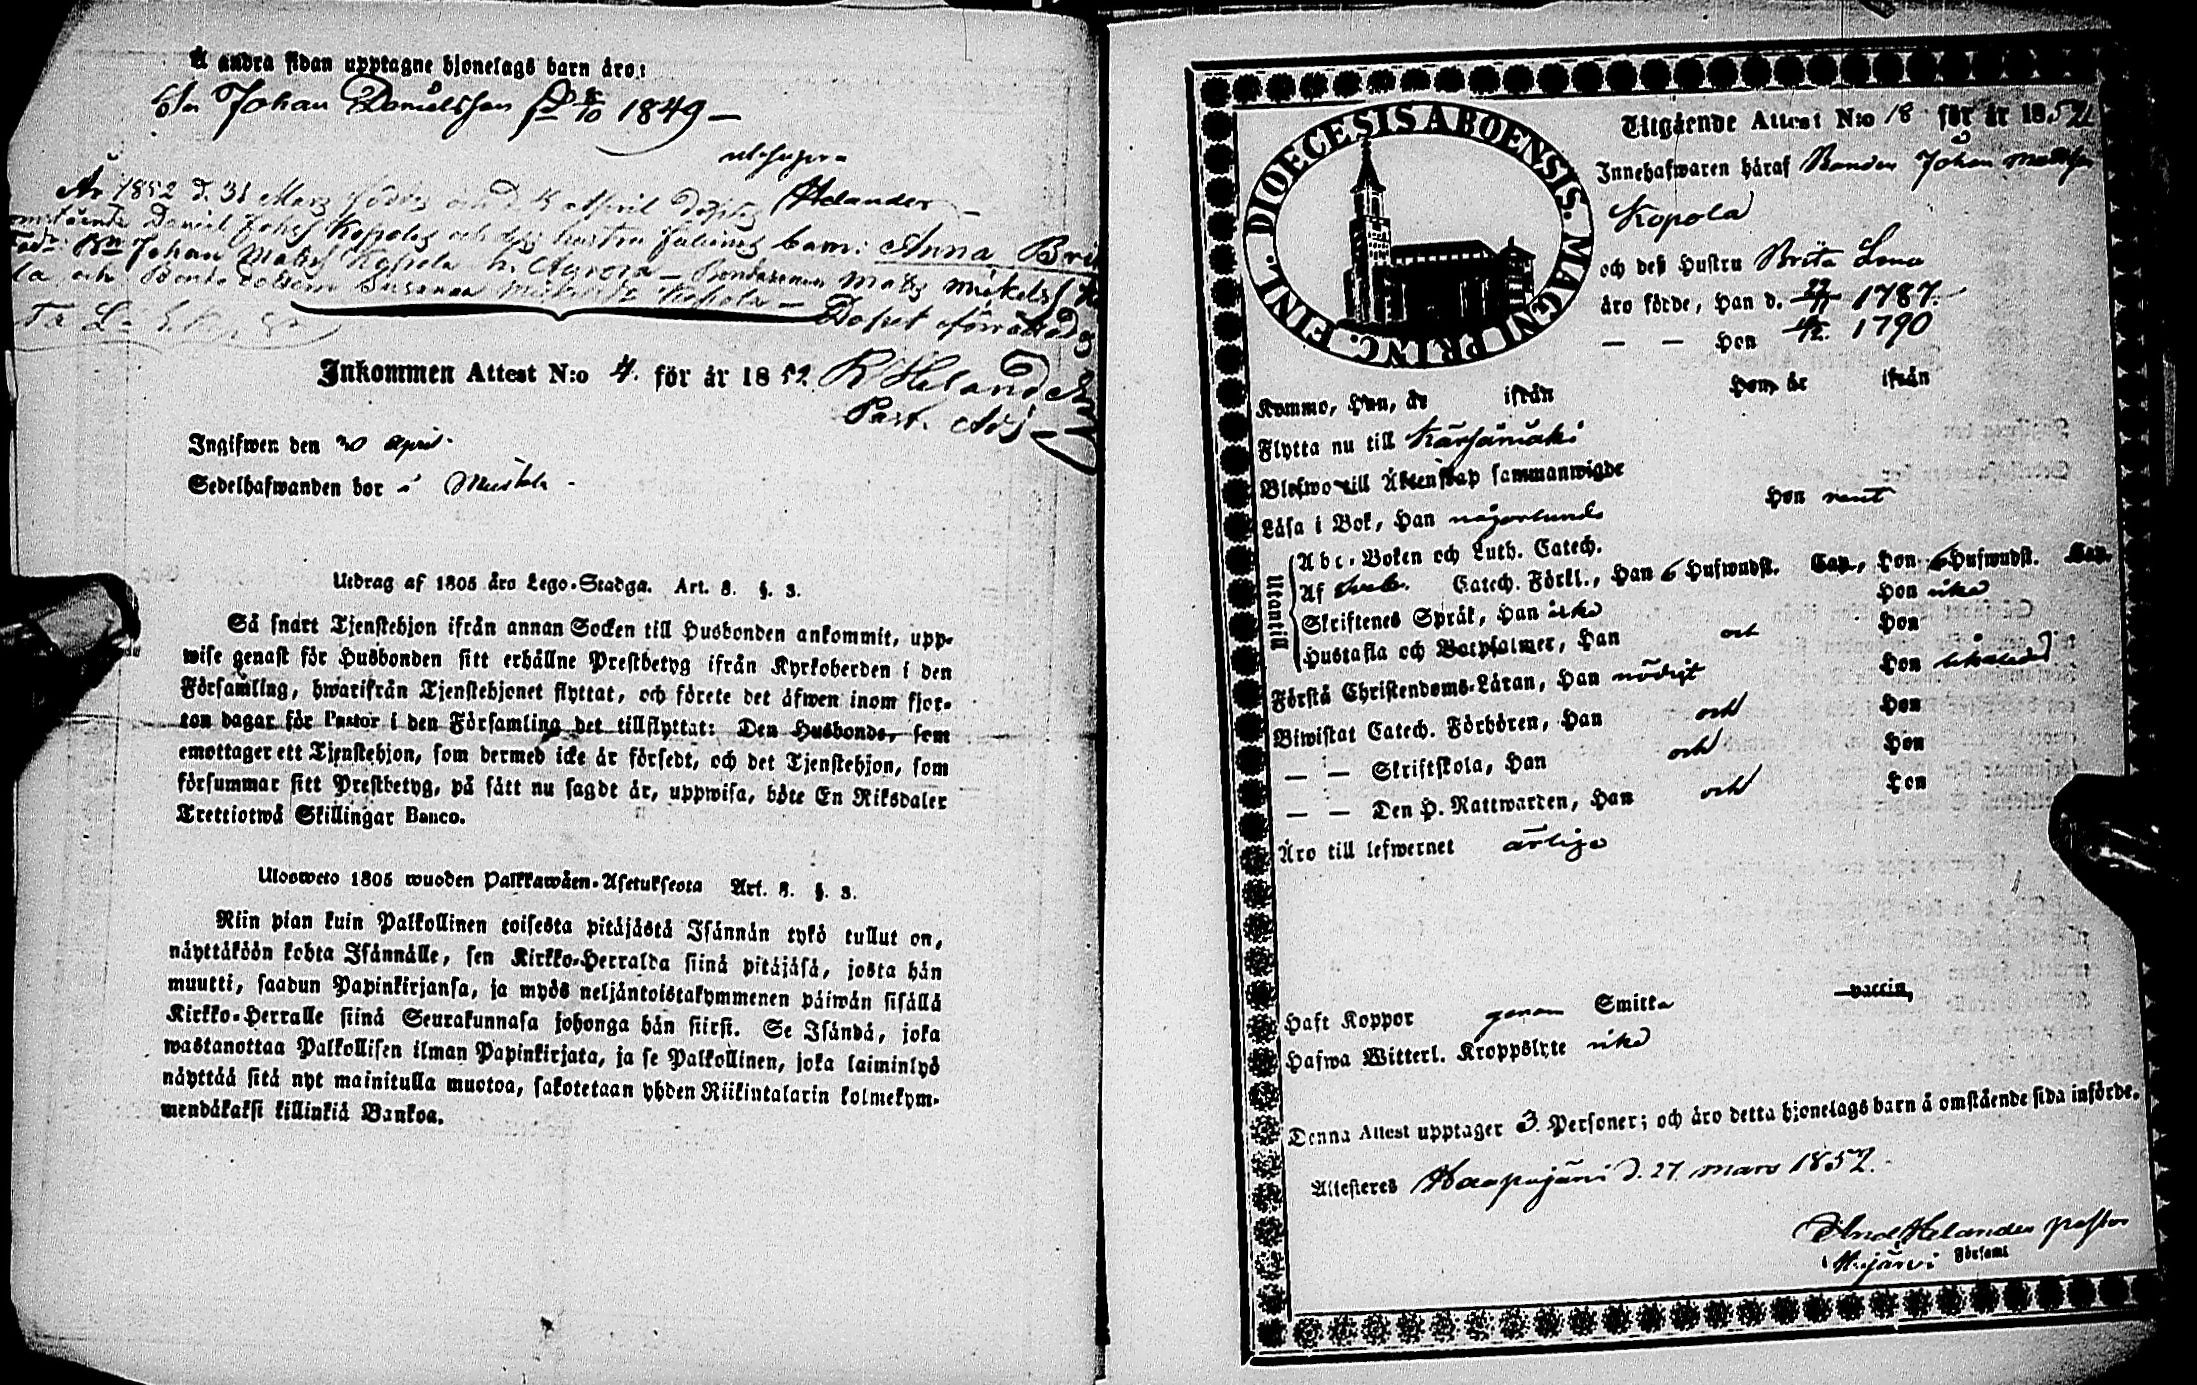 Å andra sidan upptagne hjonelags barn äro:
Johan Danielsson 1849 —
ut supra
Helander
År 1852 d. 31 Mars föddes och d. April döptes
Daniel Johss Kopola och dess hustru barn: Anna Bri
Johan Matss Kopola h. — Bondesonen Matts Mickelss
la och Susanna Kopola — Dopet förrättade
Inkommen Attest N:o 4. för år 1852
R Helander
Past. Adj
Ingifwen den 30 April
Sedelhafwanden bor i
Utdrag af 1805 års Lego-Stadga. Art. 8. §. 3.
Så snart Tjenstehjon ifrån annan Socken till Husbonden ankommit, upp-
wise genast för Husbonden sitt erhållne Prestbetyg ifrån Kyrkoherden i den
Församling, hwarifrån Tjenstehjonet flyttat, och förete det äfwen inom fjor-
ton dagar för Pastor i den Församling det tillflyttat: Den Husbonde, som
emottager ett Tjenstehjon, som dermed icke är försedt, och det Tjenstehjon, som
försummar sitt Prestbetyg, på sätt nu sagdt är, uppwisa, böte En Riksdaler
Trettiotwå Skillingar Banco.
Ulosweto 1805 wuoden Palkkawäen-Asetuksesta Art. 8. §. 3.
Niin pian kuin Palkollinen toisesta pitäjästä Isännän tykö tullut on,
näyttäköön kohta Isännälle, sen Kirkko-Herralda siinä pitäjäsä, josta hän
muutti, saadun Papinkirjansa, ja myös neljäntoistakymmenen päiwän sisällä
Kirkko-Herralle siinä Seurakunnasa johonga hän siirsi. Se Isändä, joka
wastanottaa Palkollisen ilman Papinkirjata, ja se Palkollinen, joka laiminlyö
näyttää sitä nyt mainitulla muotoa, sakotetaan yhden Riikintalarin kolmekym-
mendäkaksi killinkiä Bankoa.
DIOECESIS ABOENSIS. MAGNI PRINC. FINL.
Utgående Attest N:o 18 för år 1852
Innehafwaren häraf Bonden Johan Mattsson
Kopola
och deß Hustru Brita Lena
äro födde, Han d. 1787.
— — Hon 1790
Kommo, Han, år ifrån Hon, år ifrån
Flytta nu till Kärsämäki
Blefwo till Äktenskap sammanwigde
Läsa i Bok, Han någorlunda Hon rent
Utantill
Abc-Boken och Luth. Catech.
Af Sveb. Catech. Förkl., Han 6 Hufwudst. Cap., Hon 6 Hufwudst. Cap.
Skriftenes Språk, Han icke Hon icke
Hustafla och Botpsalmer, Han och Hon
Förstå Christendoms-Läran, Han nödigt Hon likaledes
Biwistat Catech. Förhören, Han och Hon
— — Skriftskola, Han och Hon
— — Den H. Nattwarden, Han och Hon
Äro till lefwernet ärliga
Haft Koppor genom Smitta vaccin,
Hafwa Witterl. Kroppslyte icke
Denna Attest upptager 3 Personer; och äro detta hjonelags barn å omstående sida införde.
Attesteres Haapajärvi d. 27. Mars 1852.
Helander pastor
i Hajärvi Församl